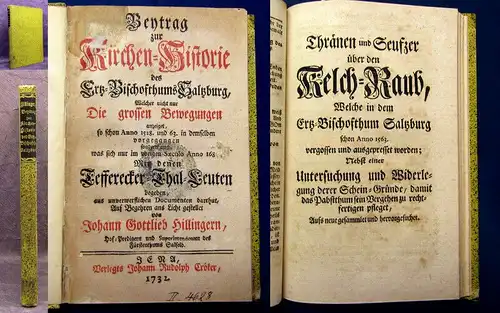 Beytrag
zur
Kirchen-Historie
des
Ertz-Bischoffthums Saltzburg,
Welcher nicht nur
Die grossen Bewegungen
anzeiget,
so schon Anno 1528. und 63. in demselben
vorgegangen
was sich nur im vorigen Seculo Anno 168
Mit denen
Tefferecker-Thal-Leuten
begeben,
aus unverwerflichen Documenten darthut,
Auf Begehren ans Licht gestellet
von
Johann Gottlieb Hillingern,
Hof-Predigern und Superintendenten des
Fürstenthums Salfeld.
JENA,
Verlegts Johann Rudolph Cröker,
1732.
II. 4628
Thränen und Seufzer
über den
Kelch-Raub,
Welche in dem
Ertz-Bischofthum Saltzburg
schon Anno 1563.
vergossen und ausgepresset worden;
Nebst einer
Untersuchung und Widerle-
gung derer Schein-Gründe, damit
das Pabstthum sein Vergehen zu recht-
fertigen pfleget,
Aufs neue gesammlet und hervorgesuchet.